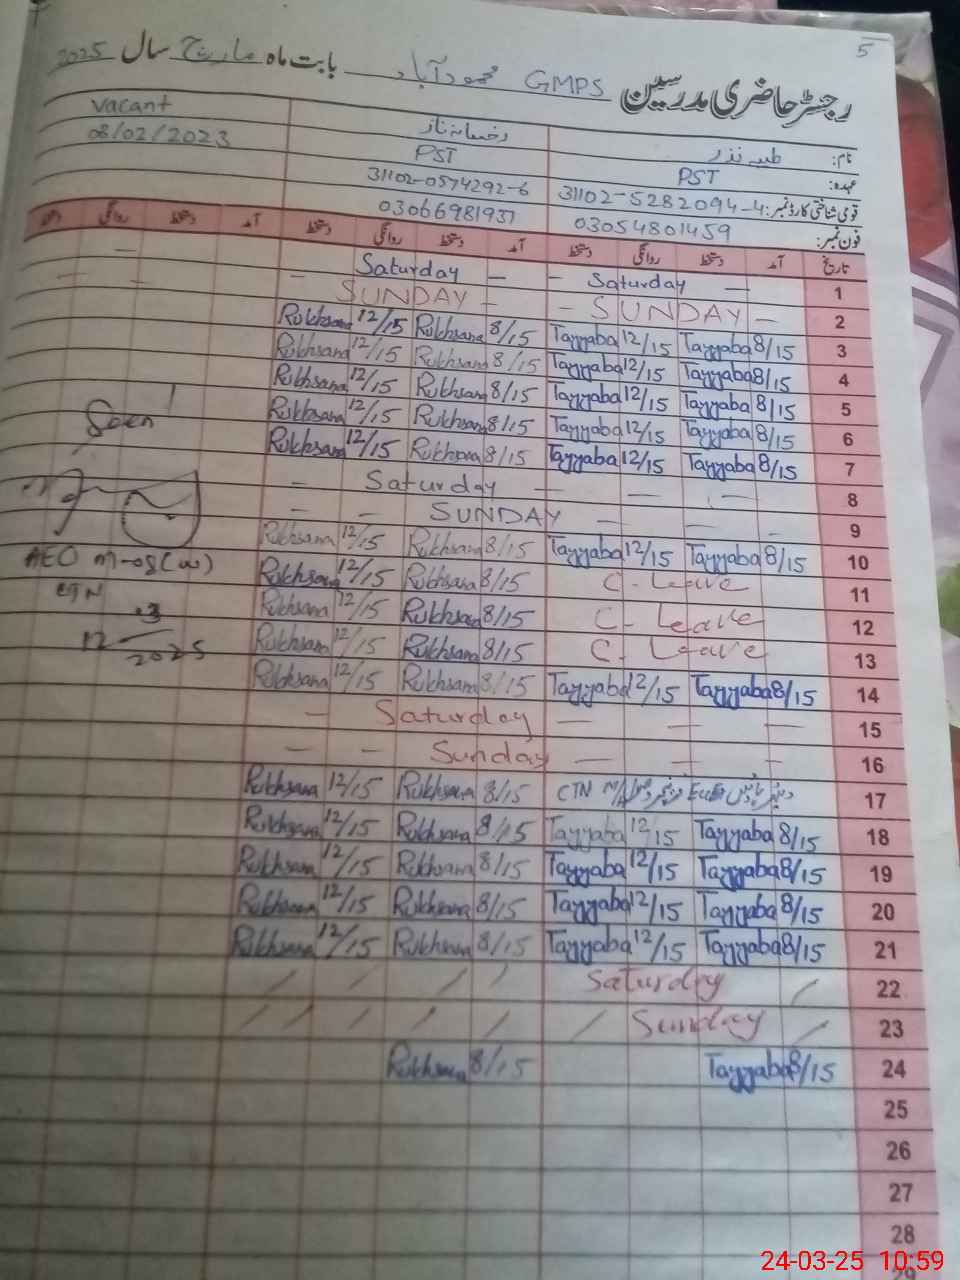 5
رجسٹر حاضری مدرسین GMPS محمود آباد بابت ماہ مارچ سال 2025
نام: طیبہ نذر رخسانہ ناز Vacant
عہدہ: PST PST 08/02/2023
قومی شناختی کارڈ نمبر: 31102-5282094-4 31102-0574292-6
فون نمبر: 03054801459 03066981937
تاریخ آمد دستخط روانگی دستخط آمد دستخط روانگی دستخط آمد دستخط روانگی دستخط
— Saturday — — Saturday — 1
— SUNDAY — — SUNDAY — 2
Rukhsana 12/15 Rukhsana 8/15 Tayyaba 12/15 Tayyaba 8/15 3
Rukhsana 12/15 Rukhsana 8/15 Tayyaba 12/15 Tayyaba 8/15 4
Rukhsana 12/15 Rukhsana 8/15 Tayyaba 12/15 Tayyaba 8/15 5
Rukhsana 12/15 Rukhsana 8/15 Tayyaba 12/15 Tayyaba 8/15 6
Rukhsana 12/15 Rukhsana 8/15 Tayyaba 12/15 Tayyaba 8/15 7
— Saturday — — — 8
— — SUNDAY — — — 9
Rukhsana 12/15 Rukhsana 8/15 Tayyaba 12/15 Tayyaba 8/15 10
Rukhsana 12/15 Rukhsana 8/15 C-Leave 11
Rukhsana 12/15 Rukhsana 8/15 C-Leave 12
Rukhsana 12/15 Rukhsana 8/15 C-Leave 13
Rukhsana 12/15 Rukhsana 8/15 Tayyaba 12/15 Tayyaba 8/15 14
— Saturday — — — 15
— — Sunday — — — 16
Rukhsana 12/15 Rukhsana 8/15 CTN 17
Rukhsana 12/15 Rukhsana 8/15 Tayyaba 12/15 Tayyaba 8/15 18
Rukhsana 12/15 Rukhsana 8/15 Tayyaba 12/15 Tayyaba 8/15 19
Rukhsana 12/15 Rukhsana 8/15 Tayyaba 12/15 Tayyaba 8/15 20
Rukhsana 12/15 Rukhsana 8/15 Tayyaba 12/15 Tayyaba 8/15 21
Saturday 22
Sunday 23
Rukhsana 8/15 Tayyaba 8/15 24
25
26
27
28
29
Seen
AEO M-08(w)
CTN
12 .3 2025
24-03-25 10:59